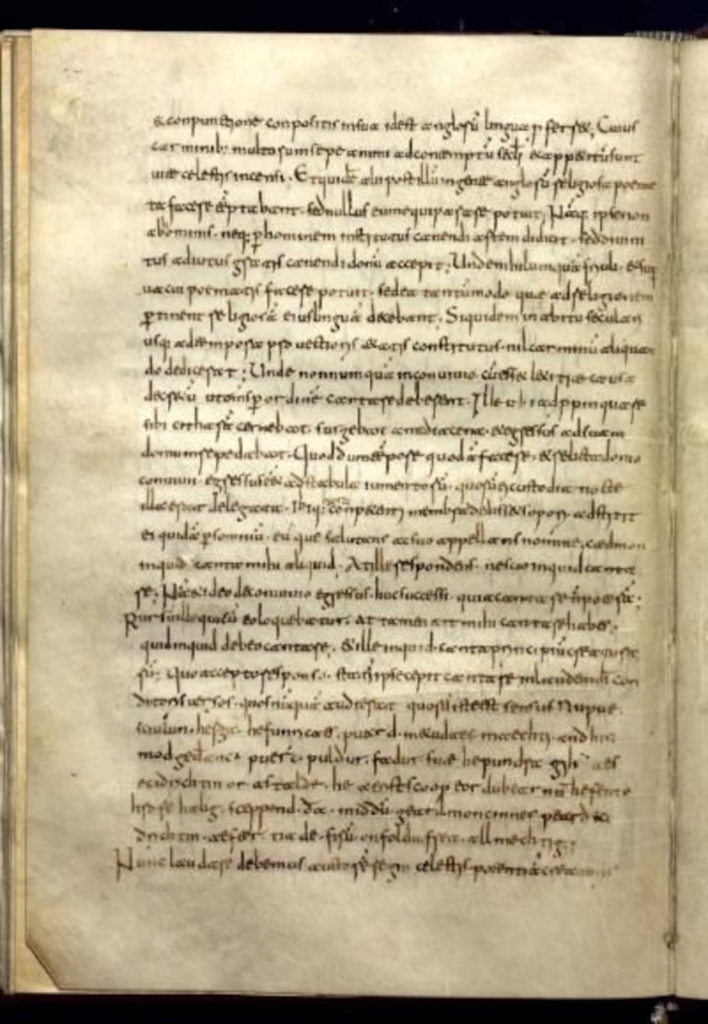 & conpunctione conpositis in sua id est anglorū lingua pferret; Cuius
carminib; multorum sepe animi ad contemptū sęcli & appetitum sunt
uitae celestis incensi. Et quidē alii post illū in gente anglorū religiosa poema
ta facere tēptabant. sed nullus eum equiparare potuit; Namq. ipse non
ab hominib; neq. p hominem institutus canendi artem didicit. sed diuini
tus adiutus gratis canendi donū accepit; Unde nihil umquā friuoli & sup
uacui poematis facere potuit. sed ea tantūmodo quae ad religionem
ptinent religiosā eius linguā decebant; Siquidem in abitu seculari
usq; ad tempora puectioris aetatis constitutus. nil carminū aliquan
do dedicerat; Unde nonnumquā in conuiuio cū esset laetitiae causa
decretū ut omnes p ordinē cantare deberent. Ille ubi adppinquare
sibi citharā cernebat. surgebat a media cena. & egressus ad suam
domum repedabat. Quod dum tēpore quodā faceret. & relicta domo
conuiuii egressus e&t ad stabula iumentorū. quorū ei custodia nocte
illa erat delegata. Ibiq; conpetenti membra dedisset sopori adstitit
ei quidā p somniū. eūque salutans ac suo appellans nomine. caedmon
inquid canta mihi aliquid. At ille respondens. nescio inquid canta
re; Nā & ideo de conuiuio egressus. huc successi. quia cantare n poterā;
Rursū ille qui cū eo loquebatur. at tamen ait mihi cantare habes.
quid inquid debeo cantare. & ille inquid. canta principiū creatura
rū; Quo accepto responso. statī ipse cepit cantare in laudem dī con
ditoris uersos. quos nūquā audierat quorū iste est sensus Nu pue
sciulun. hergia. hefunricaes. puard. metudaes maechti. and his
modgedanc. puerc. puldur. fadur. sue he pundra gihuaes
eci drichtin or astalde. he aerist scoop eordu bearnū hefen to
hrofe halig. sceppend. da. middū geard moncinnes peard eci
drichtin. aefter. tia de. firū. on foldu. frea. allmechtig.;
Nunc laudare debemus auctorē regni celestis. potentiā creatoris